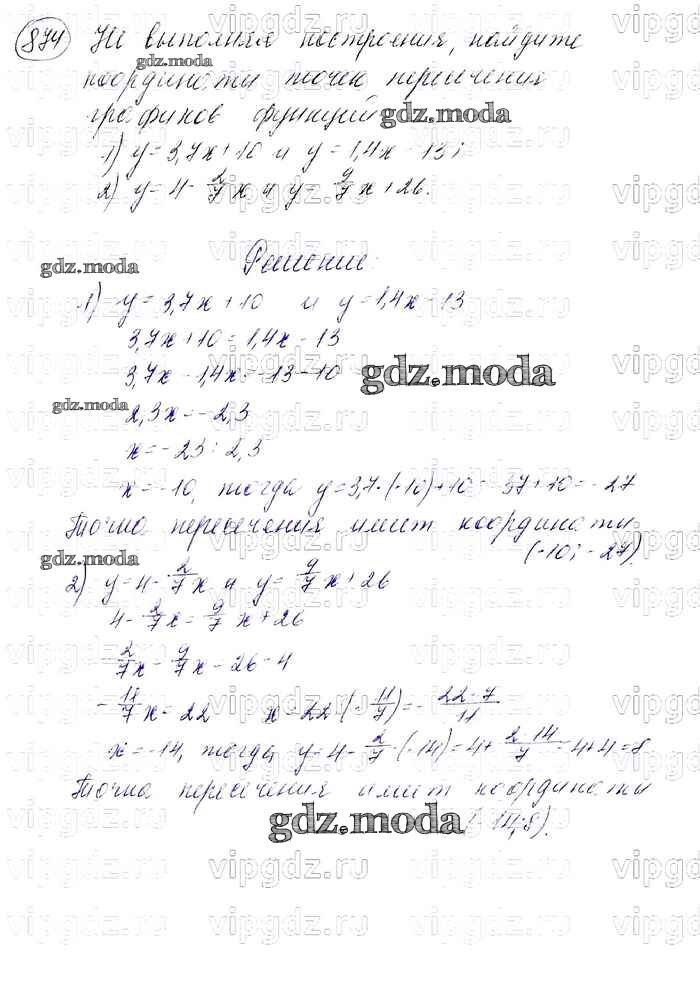 874 Не выполняя построения, найдите
координаты точек пересечения
графиков функций
1) y=3,7x+10 и y=1,4x-13;
2) y=4-2/7x и y=9/7x+26.
Решение
1) y=3,7x+10 и y=1,4x-13
3,7x+10=1,4x-13
3,7x-1,4x=-13-10
2,3x=-2,3
x=-23:2,3
x=-10, тогда y=3,7·(-10)+10=-37+10=-27
Точка пересечения имеет координаты
(-10;-27).
2) y=4-2/7x и y=9/7x+26
4-2/7x=9/7x+26
-2/7x-9/7x=26-4
-11/7x=22 x=22:(-11/7)=-22·7/11
x=-14, тогда y=4-2/7·(-14)=4+2·14/7=4+4=8
Точка пересечения имеет координаты
(-14;8).
gdz.moda
gdz.moda
gdz.moda
gdz.moda
gdz.moda
gdz.moda
gdz.moda
vipgdz.ru